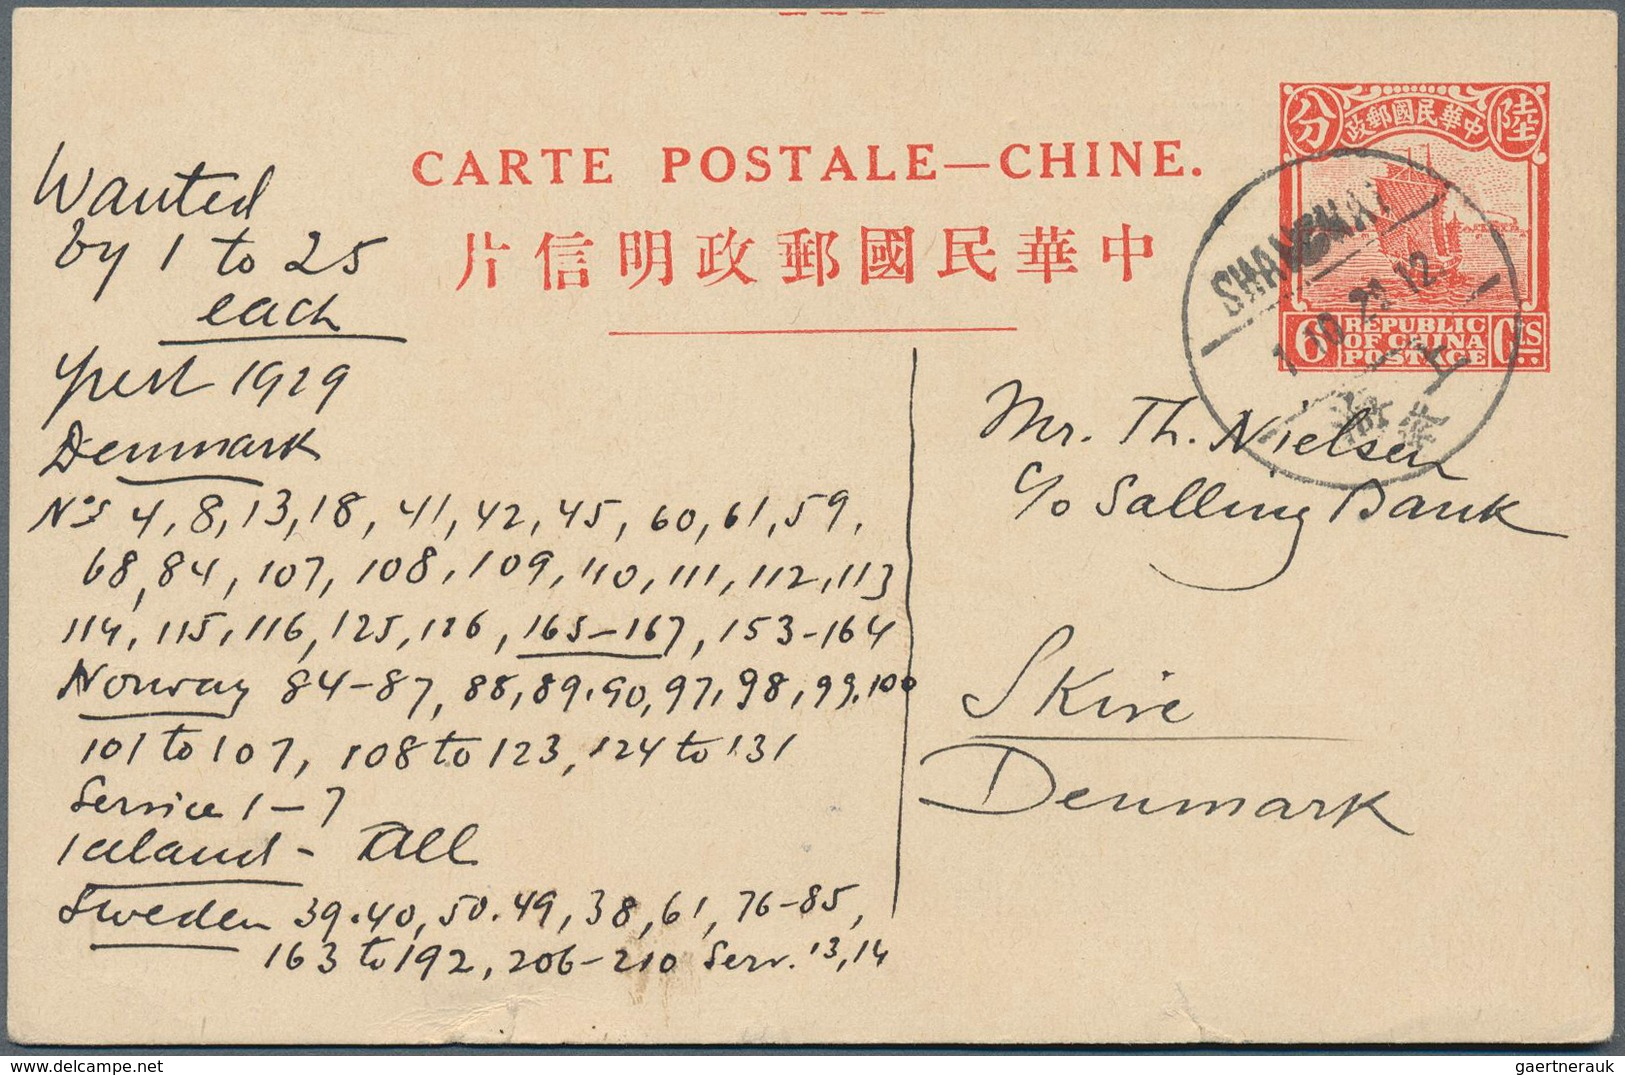 CARTE POSTALE—CHINE.
片信明政郵國民華中
分 政郵國民華中 陸
6 REPUBLIC OF CHINA POSTAGE CTS.
SHANGHAI
1.10.29.12
上海
Wanted
by 1 to 25
each
1929
Denmark
Nos 4, 8, 13, 18, 41, 42, 45, 60, 61, 59,
68, 84, 107, 108, 109, 110, 111, 112, 113
114, 115, 116, 125, 126, 165–167, 153–164
Norway 84–87, 88, 89.90, 97, 98, 99.100
101 to 107, 108 to 123, 124 to 131
Service 1–7
Iceland – All
Sweden 39.40, 50.49, 38, 61, 76–85,
163 to 192, 206–210 Serv. 13, 14
Mr. Th. Nielsen
c/o Salling Bank
Skive
Denmark
gaertnerauk